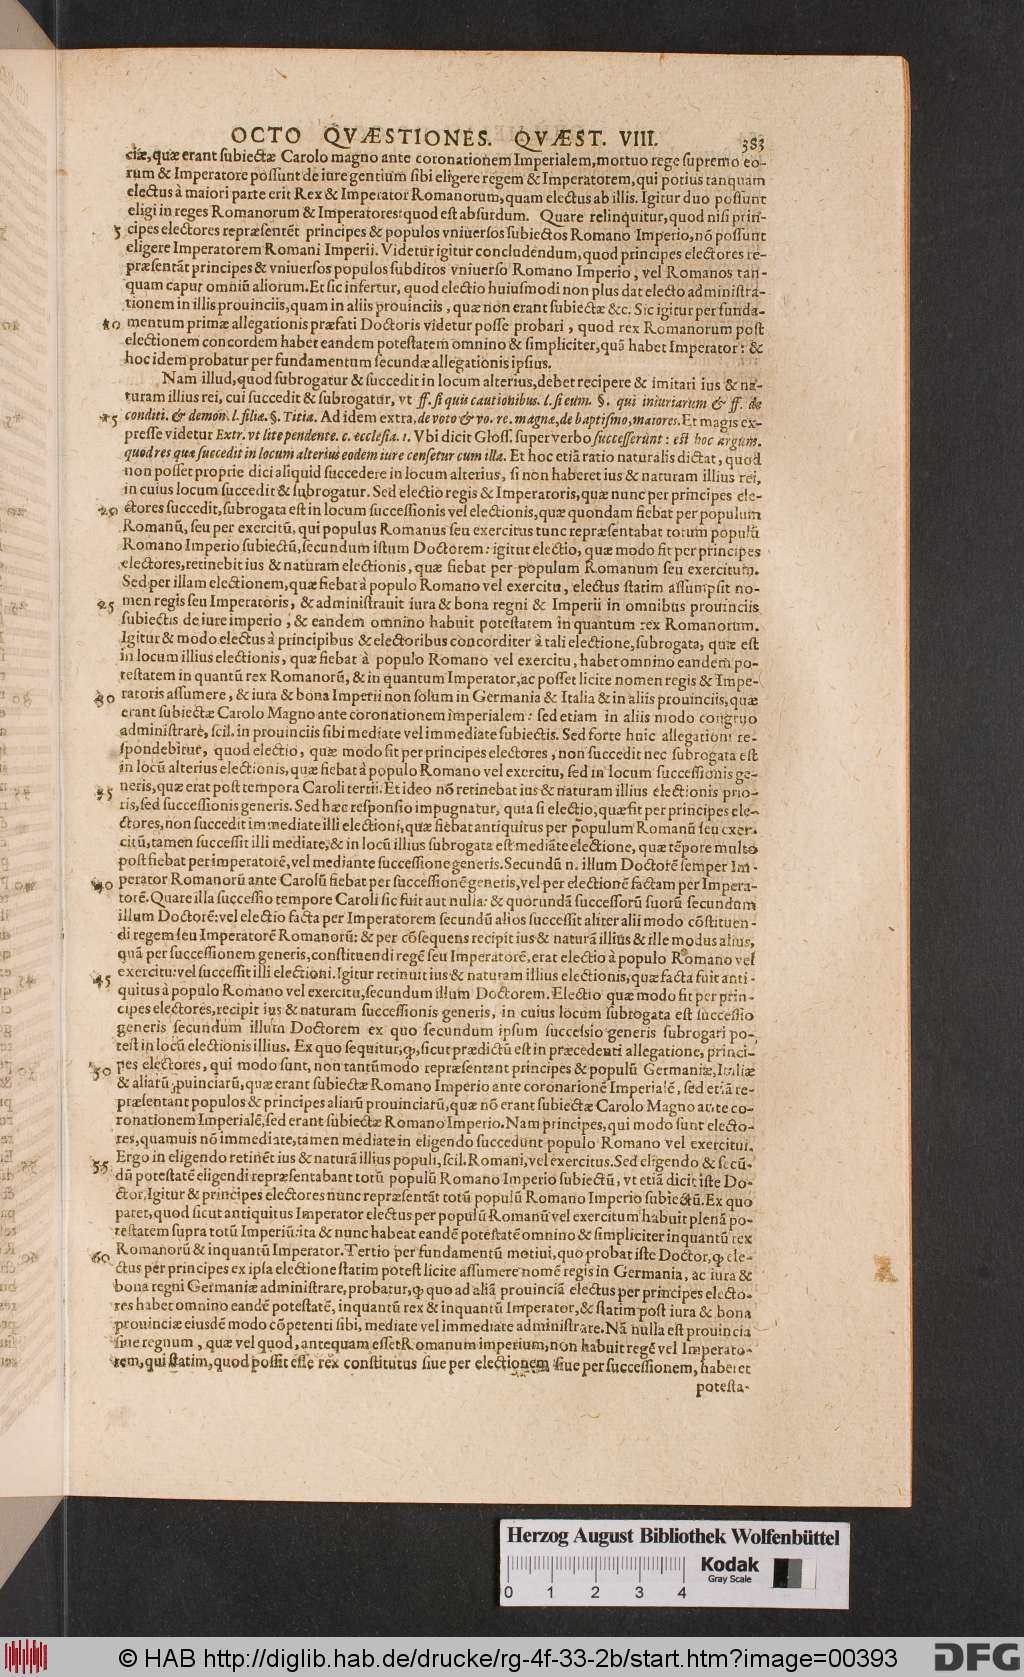 OCTO QVÆSTIONES. QVÆST. VIII. 383
ciæ, quæ erant subiectæ Carolo magno ante coronationem Imperialem, mortuo rege supremo eo-
rum & Imperatore possunt de iure gentium sibi eligere regem & Imperatorem, qui potius tanquam
electus à maiori parte erit Rex & Imperator Romanorum, quam electus ab illis. Igitur duo possunt
eligi in reges Romanorum & Imperatores: quod est absurdum. Quare relinquitur, quod nisi prin-
5 cipes electores repræsentēt principes & populos vniuersos subiectos Romano Imperio, nō possunt
eligere Imperatorem Romani Imperii. Videtur igitur concludendum, quod principes electores re-
præsentāt principes & vniuersos populos subditos vniuerso Romano Imperio, vel Romanos tan-
quam caput omniū aliorum. Et sic infertur, quod electio huiusmodi non plus dat electo administra-
tionem in illis prouinciis, quam in aliis prouinciis, quæ non erant subiectæ &c. Sic igitur per funda-
10 mentum primæ allegationis præfati Doctoris videtur posse probari, quod rex Romanorum post
electionem concordem habet eandem potestatem omnino & simpliciter, quā habet Imperator: &
hoc idem probatur per fundamentum secundæ allegationis ipsius.
Nam illud, quod subrogatur & succedit in locum alterius, debet recipere & imitari ius & na-
turam illius rei, cui succedit & subrogatur, vt ff. si quis cautionibus. l. si eum. §. qui iniuriarum & ff. de
15 conditi. & demon. l. filiæ. §. Titia. Ad idem extra, de voto & vo. re. magnæ, de baptismo, maiores. Et magis ex-
presse videtur Extr. vt lite pendente. c. ecclesia. 1. Vbi dicit Gloss. super verbo successerunt: est hoc argum.
quod res quæ succedit in locum alterius eodem iure censetur cum illa. Et hoc etiā ratio naturalis dictat, quod
non posset proprie dici aliquid succedere in locum alterius, si non haberet ius & naturam illius rei,
in cuius locum succedit & subrogatur. Sed electio regis & Imperatoris, quæ nunc per principes ele-
20 ctores succedit, subrogata est in locum successionis vel electionis, quæ quondam fiebat per populum
Romanū, seu per exercitū, qui populus Romanus seu exercitus tunc repræsentabat totum populū
Romano Imperio subiectū, secundum istum Doctorem: igitur electio, quæ modo fit per principes
electores, retinebit ius & naturam electionis, quæ fiebat per populum Romanum seu exercitum.
Sed per illam electionem, quæ fiebat à populo Romano vel exercitu, electus statim assumpsit no-
25 men regis seu Imperatoris, & administrauit iura & bona regni & Imperii in omnibus prouinciis
subiectis de iure imperio, & eandem omnino habuit potestatem in quantum rex Romanorum.
Igitur & modo electus à principibus & electoribus concorditer à tali electione, subrogata, quæ est
in locum illius electionis, quæ fiebat à populo Romano vel exercitu, habet omnino eandem po-
testatem in quantū rex Romanorū, & in quantum Imperator, ac posset licite nomen regis & Impe-
30 ratoris assumere, & iura & bona Imperii non solum in Germania & Italia & in aliis prouinciis, quæ
erant subiectæ Carolo Magno ante coronationem imperialem: sed etiam in aliis modo congruo
administrare, scil. in prouinciis sibi mediate vel immediate subiectis. Sed forte huic allegationi re-
spondebitur, quod electio, quæ modo fit per principes electores, non succedit nec subrogata est
in locū alterius electionis, quæ fiebat à populo Romano vel exercitu, sed in locum successionis ge-
35 neris, quæ erat post tempora Caroli tertii. Et ideo nō retinebat ius & naturam illius electionis prio-
ris, sed successionis generis. Sed hæc responsio impugnatur, quia si electio, quæ fit per principes ele-
ctores, non succedit immediate illi electioni, quæ fiebat antiquitus per populum Romanū seu exer-
citū, tamen successit illi mediate, & in locū illius subrogata est mediāte electione, quæ tēpore multo
post fiebat per imperatorē, vel mediante successione generis. Secundū n. illum Doctorē semper Im-
40 perator Romanorū ante Carolū fiebat per successionē generis, vel per electionē factam per Impera-
torē. Quare illa successio tempore Caroli sic fuit aut nulla: & quorundā successorū suorū secundum
illum Doctorē: vel electio facta per Imperatorem secundū alios successit aliter alii modo cōstituen-
di regem seu Imperatorē Romanorū: & per cōsequens recipit ius & naturā illius & ille modus alius,
quā per successionem generis, constituendi regē seu Imperatorē, erat electio à populo Romano vel
45 exercitu: vel successit illi electioni. Igitur retinuit ius & naturam illius electionis, quæ facta fuit anti-
quitus à populo Romano vel exercitu, secundum illum Doctorem. Electio quæ modo fit per prin-
cipes electores, recipit ius & naturam successionis generis, in cuius locum subrogata est successio
generis secundum illum Doctorem ex quo secundum ipsum successio generis subrogari po-
test in locū electionis illius. Ex quo sequitur, ꝙ, sicut prædictū est in præcedenti allegatione, princi-
50 pes electores, qui modo sunt, non tantūmodo repræsentant principes & populū Germaniæ, Italiæ
& aliarū ꝓuinciarū, quæ erant subiectæ Romano Imperio ante coronationē Imperialē, sed etiā re-
præsentant populos & principes aliarū prouinciarū, quæ nō erant subiectæ Carolo Magno ante co-
ronationem Imperialē, sed erant subiectæ Romano Imperio. Nam principes, qui modo sunt electo-
res, quamuis nō immediate, tamen mediate in eligendo succedunt populo Romano vel exercitui.
55 Ergo in eligendo retinēt ius & naturā illius populi, scil. Romani, vel exercitus. Sed eligendo & secū-
dū potestatē eligendi repræsentabant totū populū Romano Imperio subiectū, vt etiā dicit iste Do-
ctor. Igitur & principes electores nunc repræsentāt totū populū Romano Imperio subiectū. Ex quo
patet, quod sicut antiquitus Imperator electus per populū Romanū vel exercitum habuit plenā po-
testatem supra totū Imperiū: ita & nunc habeat eandē potestatē omnino & simpliciter inquantū rex
60 Romanorū & inquantū Imperator. Tertio per fundamentū motiui, quo probat iste Doctor, ꝙ ele-
ctus per principes ex ipsa electione statim potest licite assumere nomē regis in Germania, ac iura &
bona regni Germaniæ administrare, probatur, ꝙ quo ad aliā prouinciā electus per principes electo-
res habet omnino eandē potestatē, inquantū rex & inquantū Imperator, & statim post iura & bona
prouinciæ eiusdē modo cōpetenti sibi, mediate vel immediate administrare. Nā nulla est prouincia
siue regnum, quæ vel quod, antequam esset Romanum imperium, non habuit regē vel Imperato-
rem, qui statim, quod possit esse rex constitutus siue per electionem siue per successionem, haberet
potesta-
Herzog August Bibliothek Wolfenbüttel
0 1 2 3 4
Kodak
Gray Scale
© HAB http://diglib.hab.de/drucke/rg-4f-33-2b/start.htm?image=00393
DFG